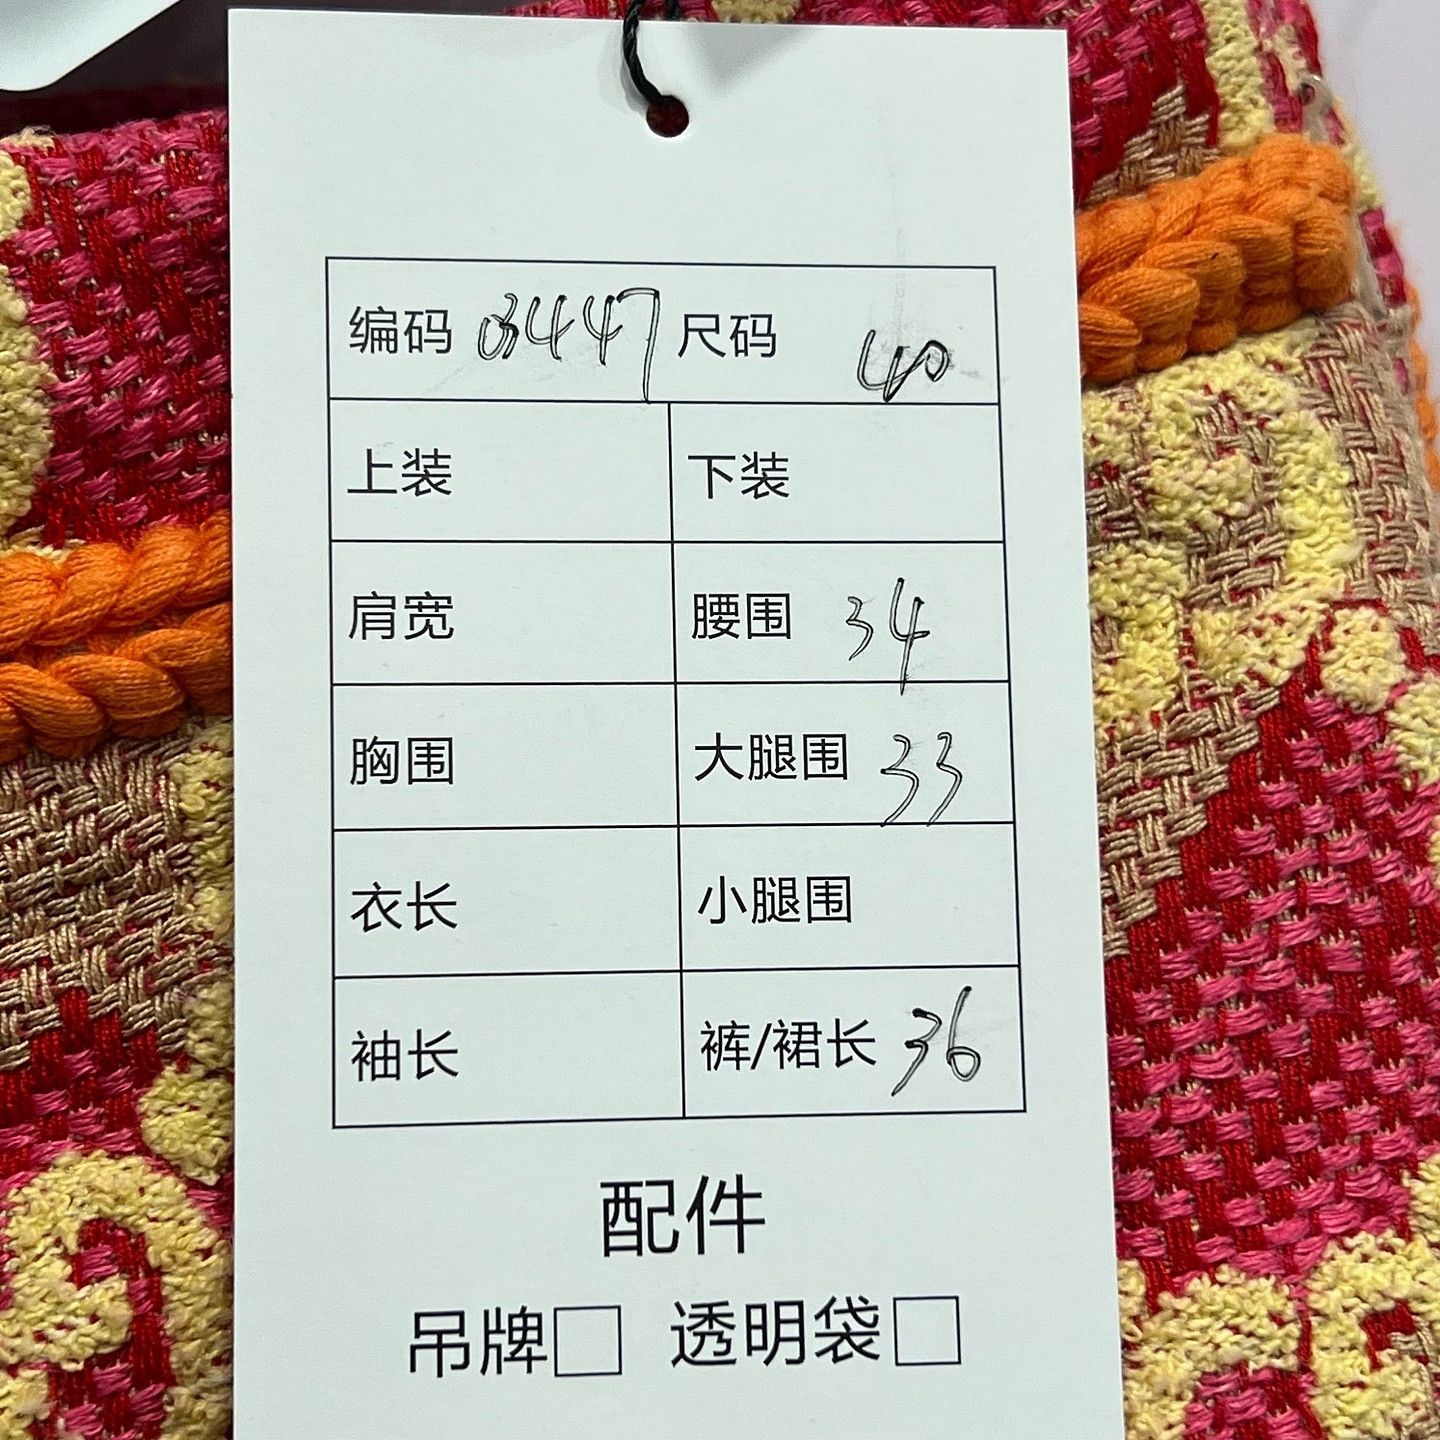 编码 03447 尺码 40
上装 下装
肩宽 腰围 34
胸围 大腿围 33
衣长 小腿围
袖长 裤/裙长 36
配件
吊牌□ 透明袋□